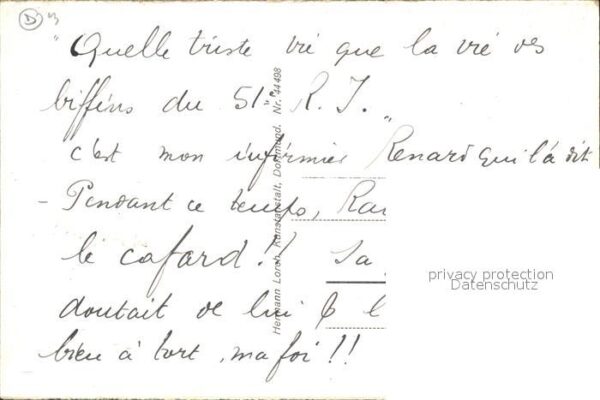 D
"Quelle triste vie que la vie des
biffins du 51me R. I. "
c'est mon infirmier Renard qui l'a dit
- Pendant ce temps,
le cafard !! Sa
doutait de lui
bien à tort, ma foi !!
Hermann Lorch, Kunstanstalt, Dortmund. Nr. 44498
privacy protection
Datenschutz